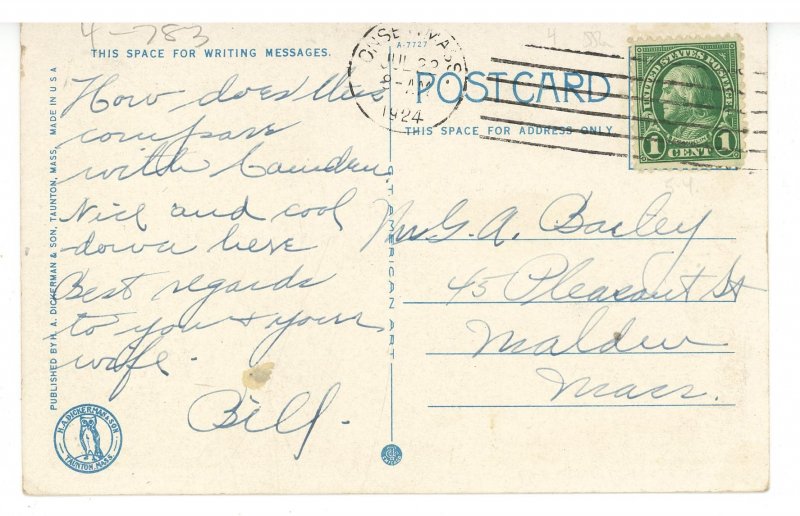 4-783
THIS SPACE FOR WRITING MESSAGES.
How does this
compare
with Camden.
Nice and cool
down here
Best regards
to you & your
wife.
Bill.
PUBLISHED BY H. A. DICKERMAN & SON, TAUNTON, MASS. MADE IN U S A
H. A. DICKERMAN & SON
TAUNTON, MASS.
C. T. AMERICAN ART
A-7727
POST CARD
THIS SPACE FOR ADDRESS ONLY
ONSET MASS
JUL
8-AM
1924
UNITED STATES POSTAGE
FRANKLIN
1 CENT 1
G. A. Bailey
45 Pleasant St
Malden
Mass.